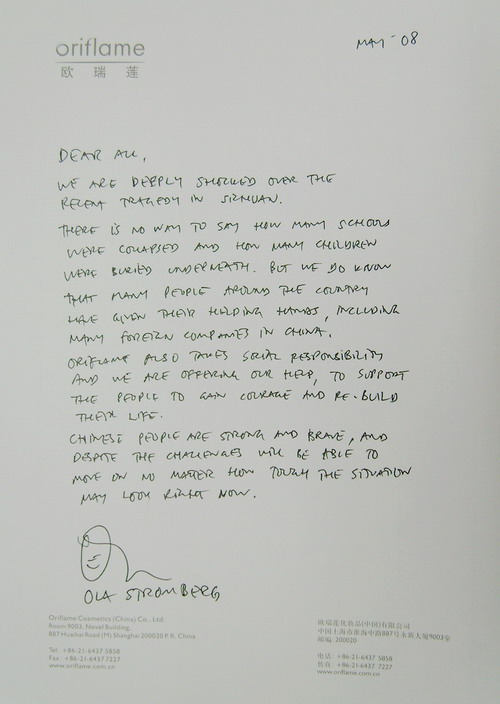 oriflame
欧瑞莲
MAY - 08
DEAR ALL,
WE ARE DEEPLY SHOCKED OVER THE
RECENT TRAGEDY IN SICHUAN.
THERE IS NO WAY TO SAY HOW MANY SCHOOLS
WERE COLLAPSED AND HOW MANY CHILDREN
WERE BURIED UNDERNEATH. BUT WE DO KNOW
THAT MANY PEOPLE AROUND THE COUNTRY
HAVE GIVEN THEIR HELDING HANDS, INCLUDING
MANY FOREIGN COMPANIES IN CHINA.
ORIFLAME ALSO TAKES SOCIAL RESPONSIBILITY
AND WE ARE OFFERING OUR HELP, TO SUPPORT
THE PEOPLE TO GAIN COURAGE AND RE-BUILD
THEIR LIFE.
CHINESE PEOPLE ARE STRONG AND BRAVE, AND
DESPITE THE CHALLENGES WILL BE ABLE TO
MOVE ON NO MATTER HOW TOUGH THE SITUATION
MAY LOOK RIGHT NOW.
OLA STROMBERG
Oriflame Cosmetics (China) Co., Ltd.
Room 9003, Novel Building,
887 Huaihai Road (M) Shanghai 200020 P. R. China
Tel: +86-21-6437 5858
Fax: +86-21-6437 7227
www.oriflame.com.cn
欧瑞莲化妆品(中国)有限公司
中国上海市淮海中路887号永新大厦9003室
邮编: 200020
电话: +86-21-6437 5858
传真: +86-21-6437 7227
www.oriflame.com.cn